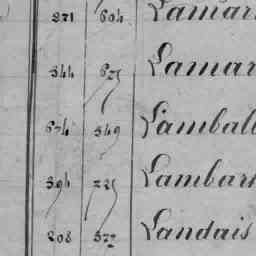 871 604 Lamar
344 625 Lamar
674 349 Lambal
394 225 Lambar
208 372 Landais